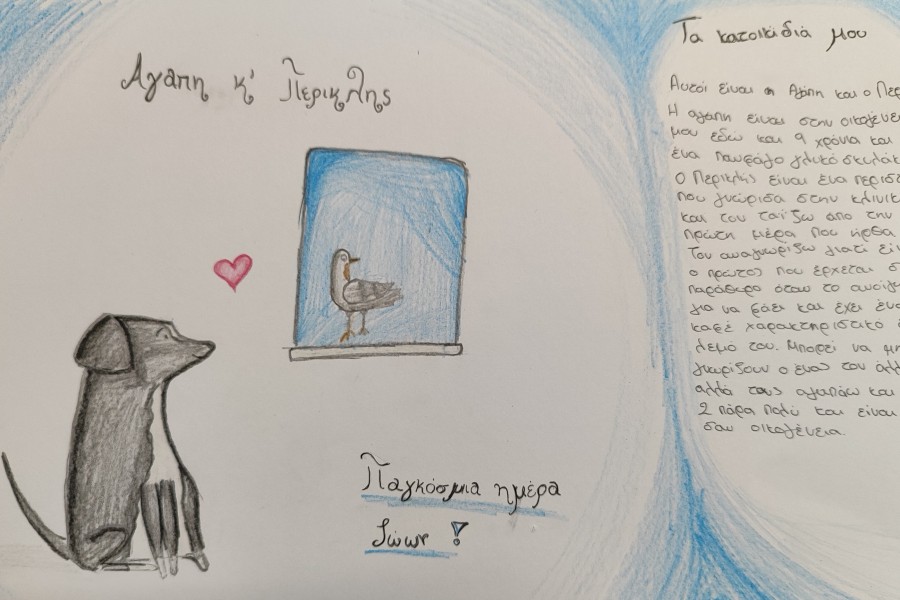 Αγάπη κ' Περικλής
Παγκόσμια ημέρα
ζώων !
Τα κατοικίδιά μου
Αυτοί είναι η Αγάπη και ο Περ
Η αγάπη είναι στην οικογένει
μου εδώ και 9 χρόνια και
ένα πανέμορφο γλυκό σκυλάκ
Ο Περικλής είναι ένα περιστ
που γνώρισα στην κλινικ
και τον ταΐζω από την
πρώτη μέρα που ήρθα
Τον αναγνωρίζω γιατί εί
ο πρώτος που έρχεται σ
παράθυρο όταν το ανοίγ
για να φάει και έχει ένα
καφέ χαρακτηριστικό
λεμό του. Μπορεί να μη
γνωρίζουν ο ένας τον άλλ
αλλά τους αγαπάω και
2 πάρα πολύ και είναι
σαν οικογένεια.